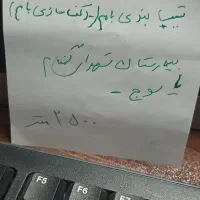 تیپ بندی بام (زیر کفسازی بام)
بیمارستان شهدای گمنام
یاسوج -
۲۵۰۰ متر
F6
F7
F8